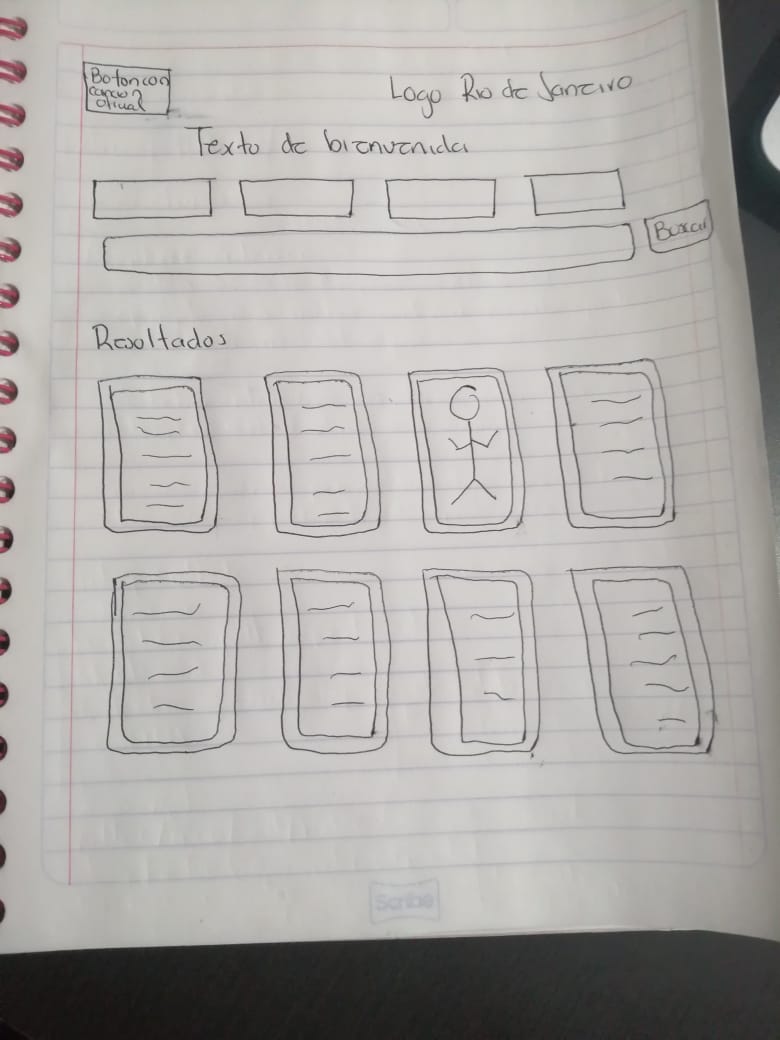 Boton con
cancion
oficial
Logo Rio de Janeiro
Texto de bienvenida
Buscar
Resultados
Scribe